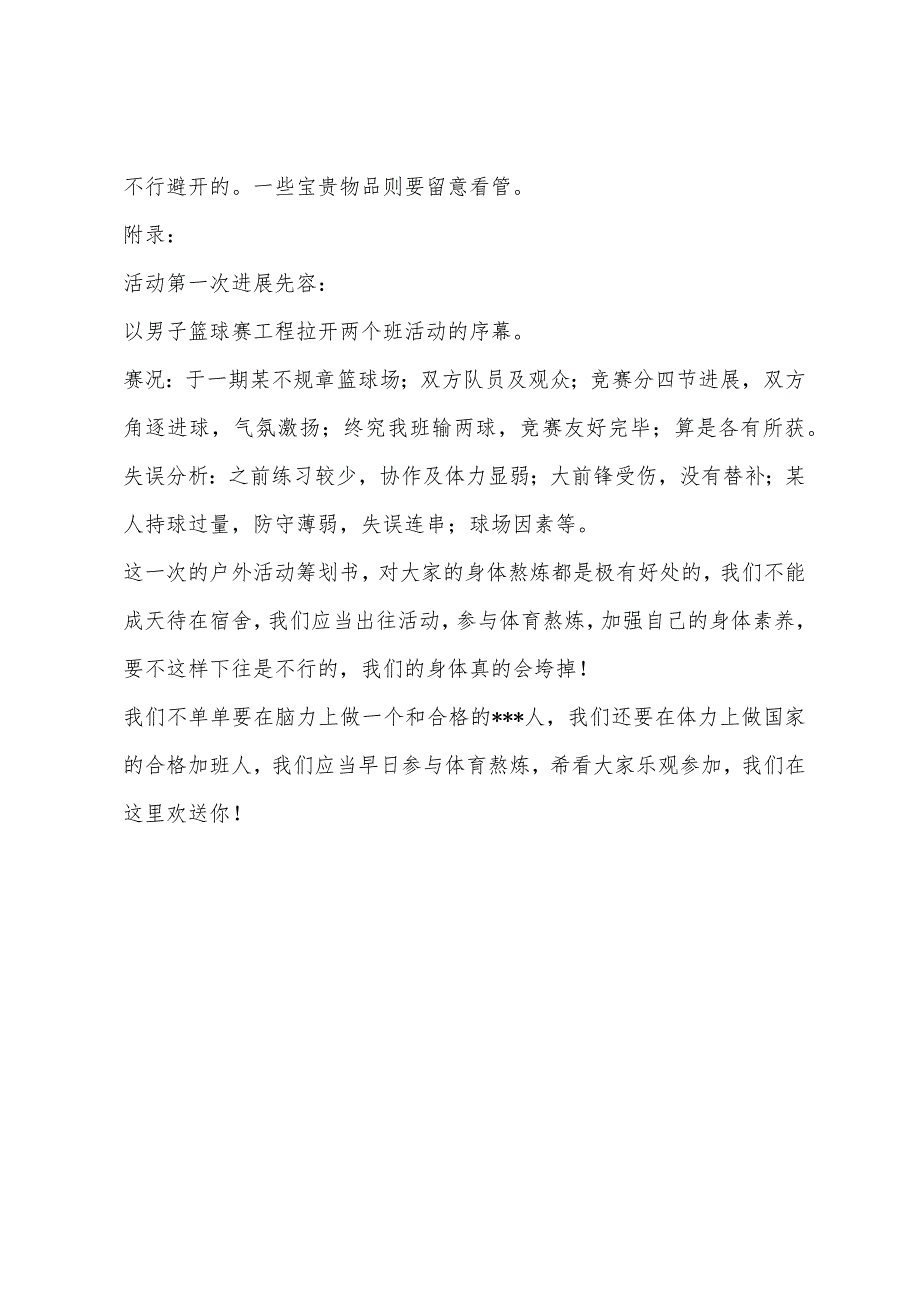 不行避开的。一些宝贵物品则要留意看管。
附录：
活动第一次进展先容：
以男子篮球赛工程拉开两个班活动的序幕。
赛况：于一期某不规章篮球场；双方队员及观众；竞赛分四节进展，双方
角逐进球，气氛激扬；终究我班输两球，竞赛友好完毕；算是各有所获。
失误分析：之前练习较少，协作及体力显弱；大前锋受伤，没有替补；某
人持球过量，防守薄弱，失误连串；球场因素等。
这一次的户外活动筹划书，对大家的身体熬炼都是极有好处的，我们不能
成天待在宿舍，我们应当出往活动，参与体育熬炼，加强自己的身体素养，
要不这样下往是不行的，我们的身体真的会垮掉！
我们不单单要在脑力上做一个和合格的***人，我们还要在体力上做国家
的合格加班人，我们应当早日参与体育熬炼，希看大家乐观参加，我们在
这里欢送你！